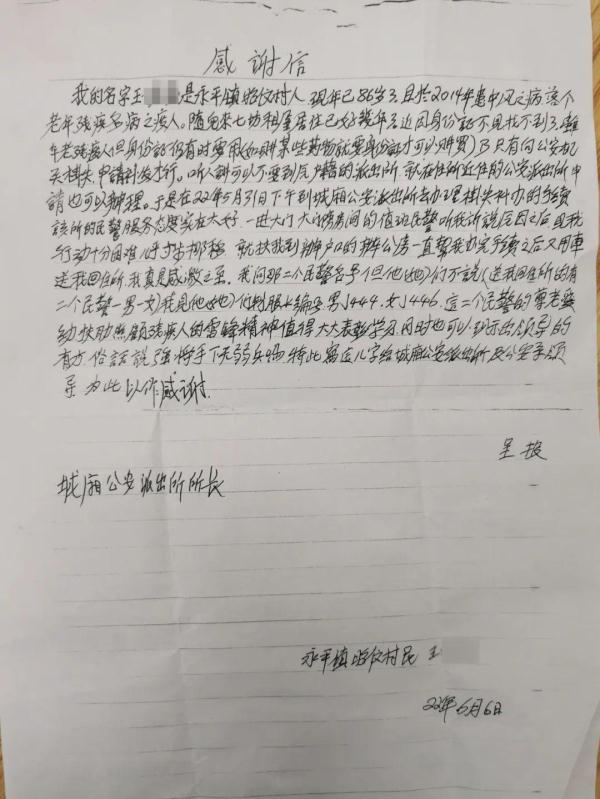 感谢信
我的名字王是永平镇村人 现年已86岁了,且於2014年患中风之病,这个
老年残疾多病之疾人。随儿来七坊租屋居住已好几年了,近因身份证不见找不到了,虽
年老残疾人但身份证仍有时要用(如购某些药物就要身份证才可以购买)乃只有向公安机
关挂失,申请补发才行。听人讲可以不要到原户籍的派出所,就在住所近住的公安派出所申
请也可以办理。于是在22年5月31日下午到城厢公安派出所去办理挂失补办的手续
该所的民警服务态度实在太好,一进大门大门傍房间的值班民警听我诉说原因之后且我
行动十分困难,得寸步挪移,就扶我到办户口的办公房一直帮我办完手续之后又用車
送我回住所,我真是感激之至。我问那二个民警名号但他(她)们不说(送我回住所的有
二个民警一男一女)我见他(她)们制服上编号男444.女446.这二个民警的尊老爱
幼扶助照顾残疾人的雷锋精神值得大大表彰学习,同时也可以现示出领导的
有方,俗話説强将手下无弱兵嘛,特此写这几字给城厢公安派出所及公安系领
导 为此以作感谢.
呈报
城厢公安派出所所长
永平镇村民 王
22年6月6日